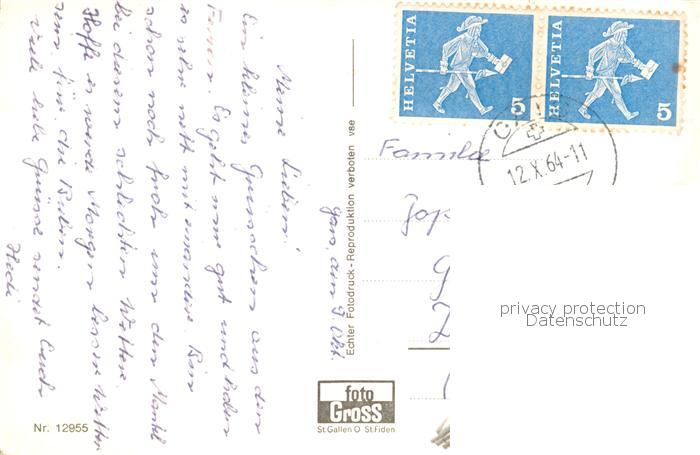 Gams, am 9. Okt.
Meine Lieben!
Ein kleines Grüsschen aus den
Ferien. Es geht uns gut und haben
es sehr nett mit einander. Bin
schon noch froh um den Mantel
bei diesem schlechten Wetter.
Hoffe es werde Morgen besser Wetter
sein für die Buben.
Viele liebe Grüsse sendet Euch
Hedi
Nr. 12955
Echter Fotodruck - Reproduktion verboten vse
foto
Gross
St.Gallen O St.Fiden
HELVETIA 5
HELVETIA 5
12.X.64-11
Familie
privacy protection
Datenschutz